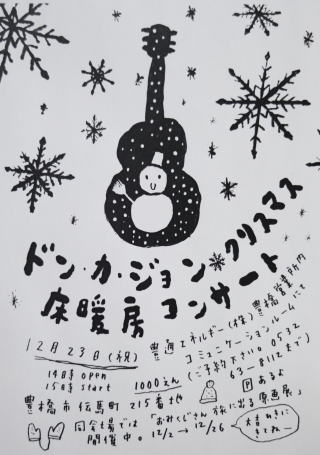 ドン・カ・ジョン クリスマス
床暖房 コンサート
12月23日(祝)
14時 open
15時 start
1000えん
豊通エネルギー(株)豊橋営業所内
コミュニケーションルームにて
(ご予約下さい。0532
63-8112まで)
豊橋市 伝馬町 215番地 Pあるよ
同会場では「おみくじさん 旅に出る原画展」
開催中。12/2→12/26
きてねー